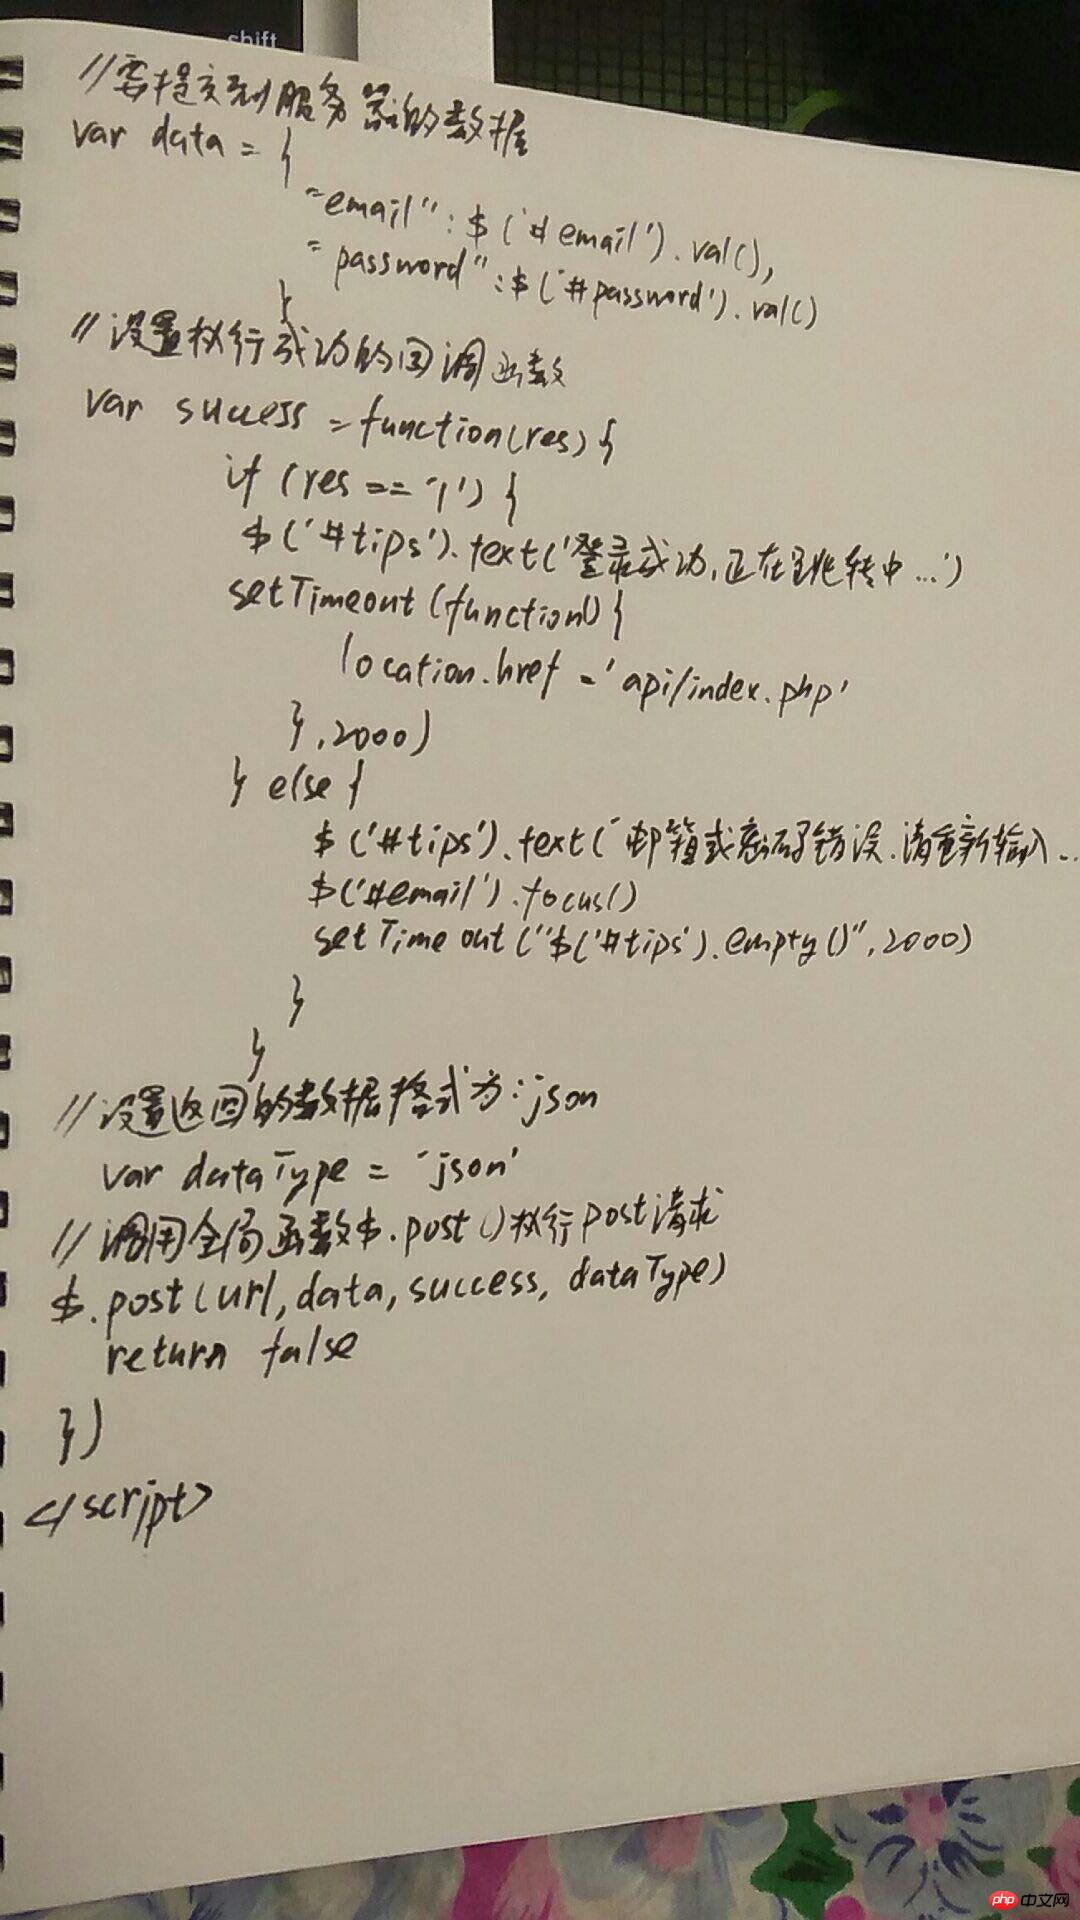 shift
//要提交到服务器的数据
var data = {
"email":$('#email').val(),
"password":$('#password').val()
}
//设置执行成功的回调函数
var success = function(res){
if (res == '1') {
$('#tips').text('登录成功,正在跳转中...')
setTimeout(function(){
location.href = 'api/index.php'
},2000)
} else {
$('#tips').text('邮箱或密码错误.请重新输入..
$('#email').focus()
setTimeout("$('#tips').empty()",2000)
}
}
//设置返回的数据格式为:json
var dataType = 'json'
//调用全局函数$.post()执行post请求
$.post(url,data,success,dataType)
return false
})
</script>
php中文网